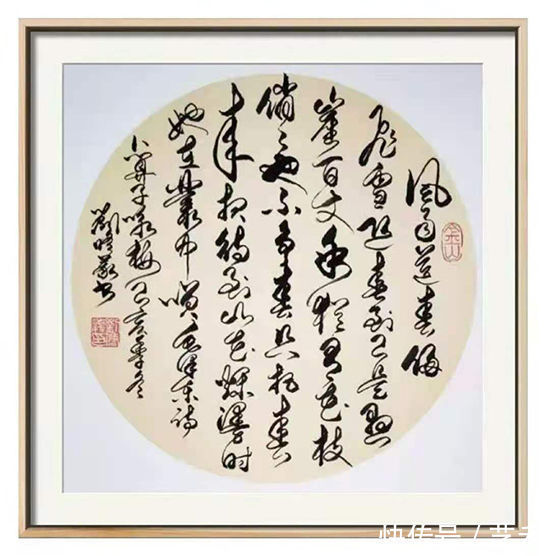 风雨送春归
飞雪迎春到已是悬
崖百丈冰犹有花枝
俏〻也不争春只把春
来报待到山花烂漫时
她在叢中笑毛泽东诗
卜算子咏梅己亥年冬
快传号 /